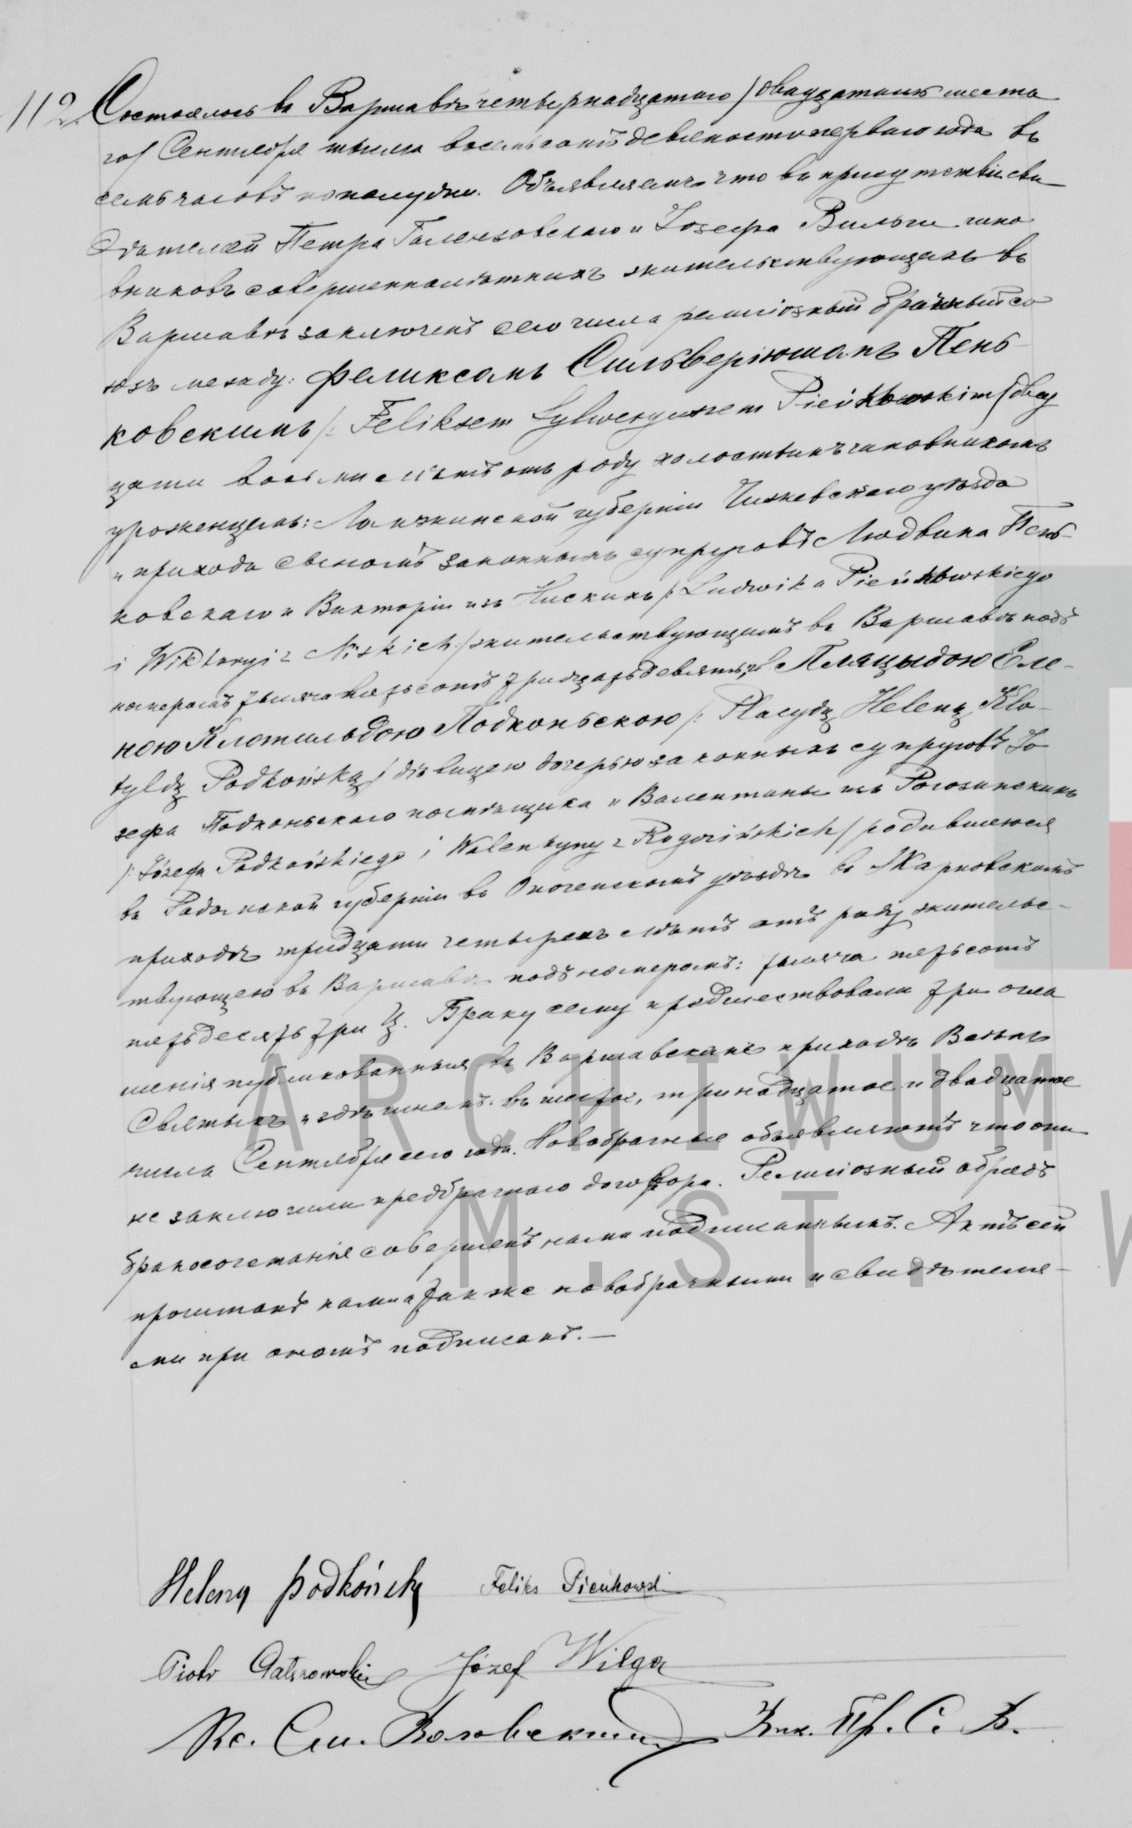 112. Состоялось въ Варшавѣ четырнадцатаго /двадцать шеста
го/ Сентября тысяча восемьсотъ девяносто перваго года въ
семь часовъ пополудни. Объявляемъ что въ присутствіи сви
дѣтелей Петра и Іозефа Вильги чино
вниковъ совершеннолѣтнихъ жительствующихъ въ
Варшавѣ заключенъ сего числа религіозный брачный со
юзъ между: Феликсомъ Сильверіюшомъ Пень-
ковскимъ /: Feliksem Sylweryuszem Pieńkowskim/ двад
цати восьми лѣтъ отъ роду холостымъ чиновникомъ
уроженцемъ: Ломжинской губерніи Чижевскаго уѣзда
и прихода сыномъ законныхъ супруговъ Людвика Пень-
ковскаго и Викторіи изъ Нискихъ /: Ludwika Pieńkowskiego
i Wiktoryi z Niskich:/ жительствующимъ въ Варшавѣ подъ
номеромъ тысяча пятьсотъ тридцать девять, и Пляцыдою Еле-
ною Клотильдою Подконьскою /: Placydą Heleną Klo-
tyldą Podkońską/ дѣвицею дочерью законныхъ супруговъ Іо
зефа Подконьскаго помѣщика и Валентины изъ Рогозинскихъ
/: Józefa Podkońskiego i Walentyny z Rogozińskich/ родившеюся
въ Радомской губерніи въ Опоченскомъ уѣздѣ въ Жарновскомъ
приходѣ тридцати четырехъ лѣтъ отъ роду жительс-
твующею въ Варшавѣ подъ номеромъ: тысяча
пятьдесятъ три Ц. Браку сему предшествовали три огла
шенія публикованныя въ Варшавскихъ приходѣ Всѣхъ
Святыхъ и здѣшнемъ въ шестое, тринадцатое и двадцатое
числа Сентября сего года. Новобрачные объявляютъ что они
не заключили предбрачнаго договора. Религіозный обрядъ
бракосочетанія совершенъ нами подписаннымъ. Актъ сей
прочитанъ нами а также новобрачными и свидѣтеля-
ми при ономъ подписанъ.—
Helena Podkońska Feliks Pieńkowski
Piotr Józef Wilga
Кс. Пр. С. В.